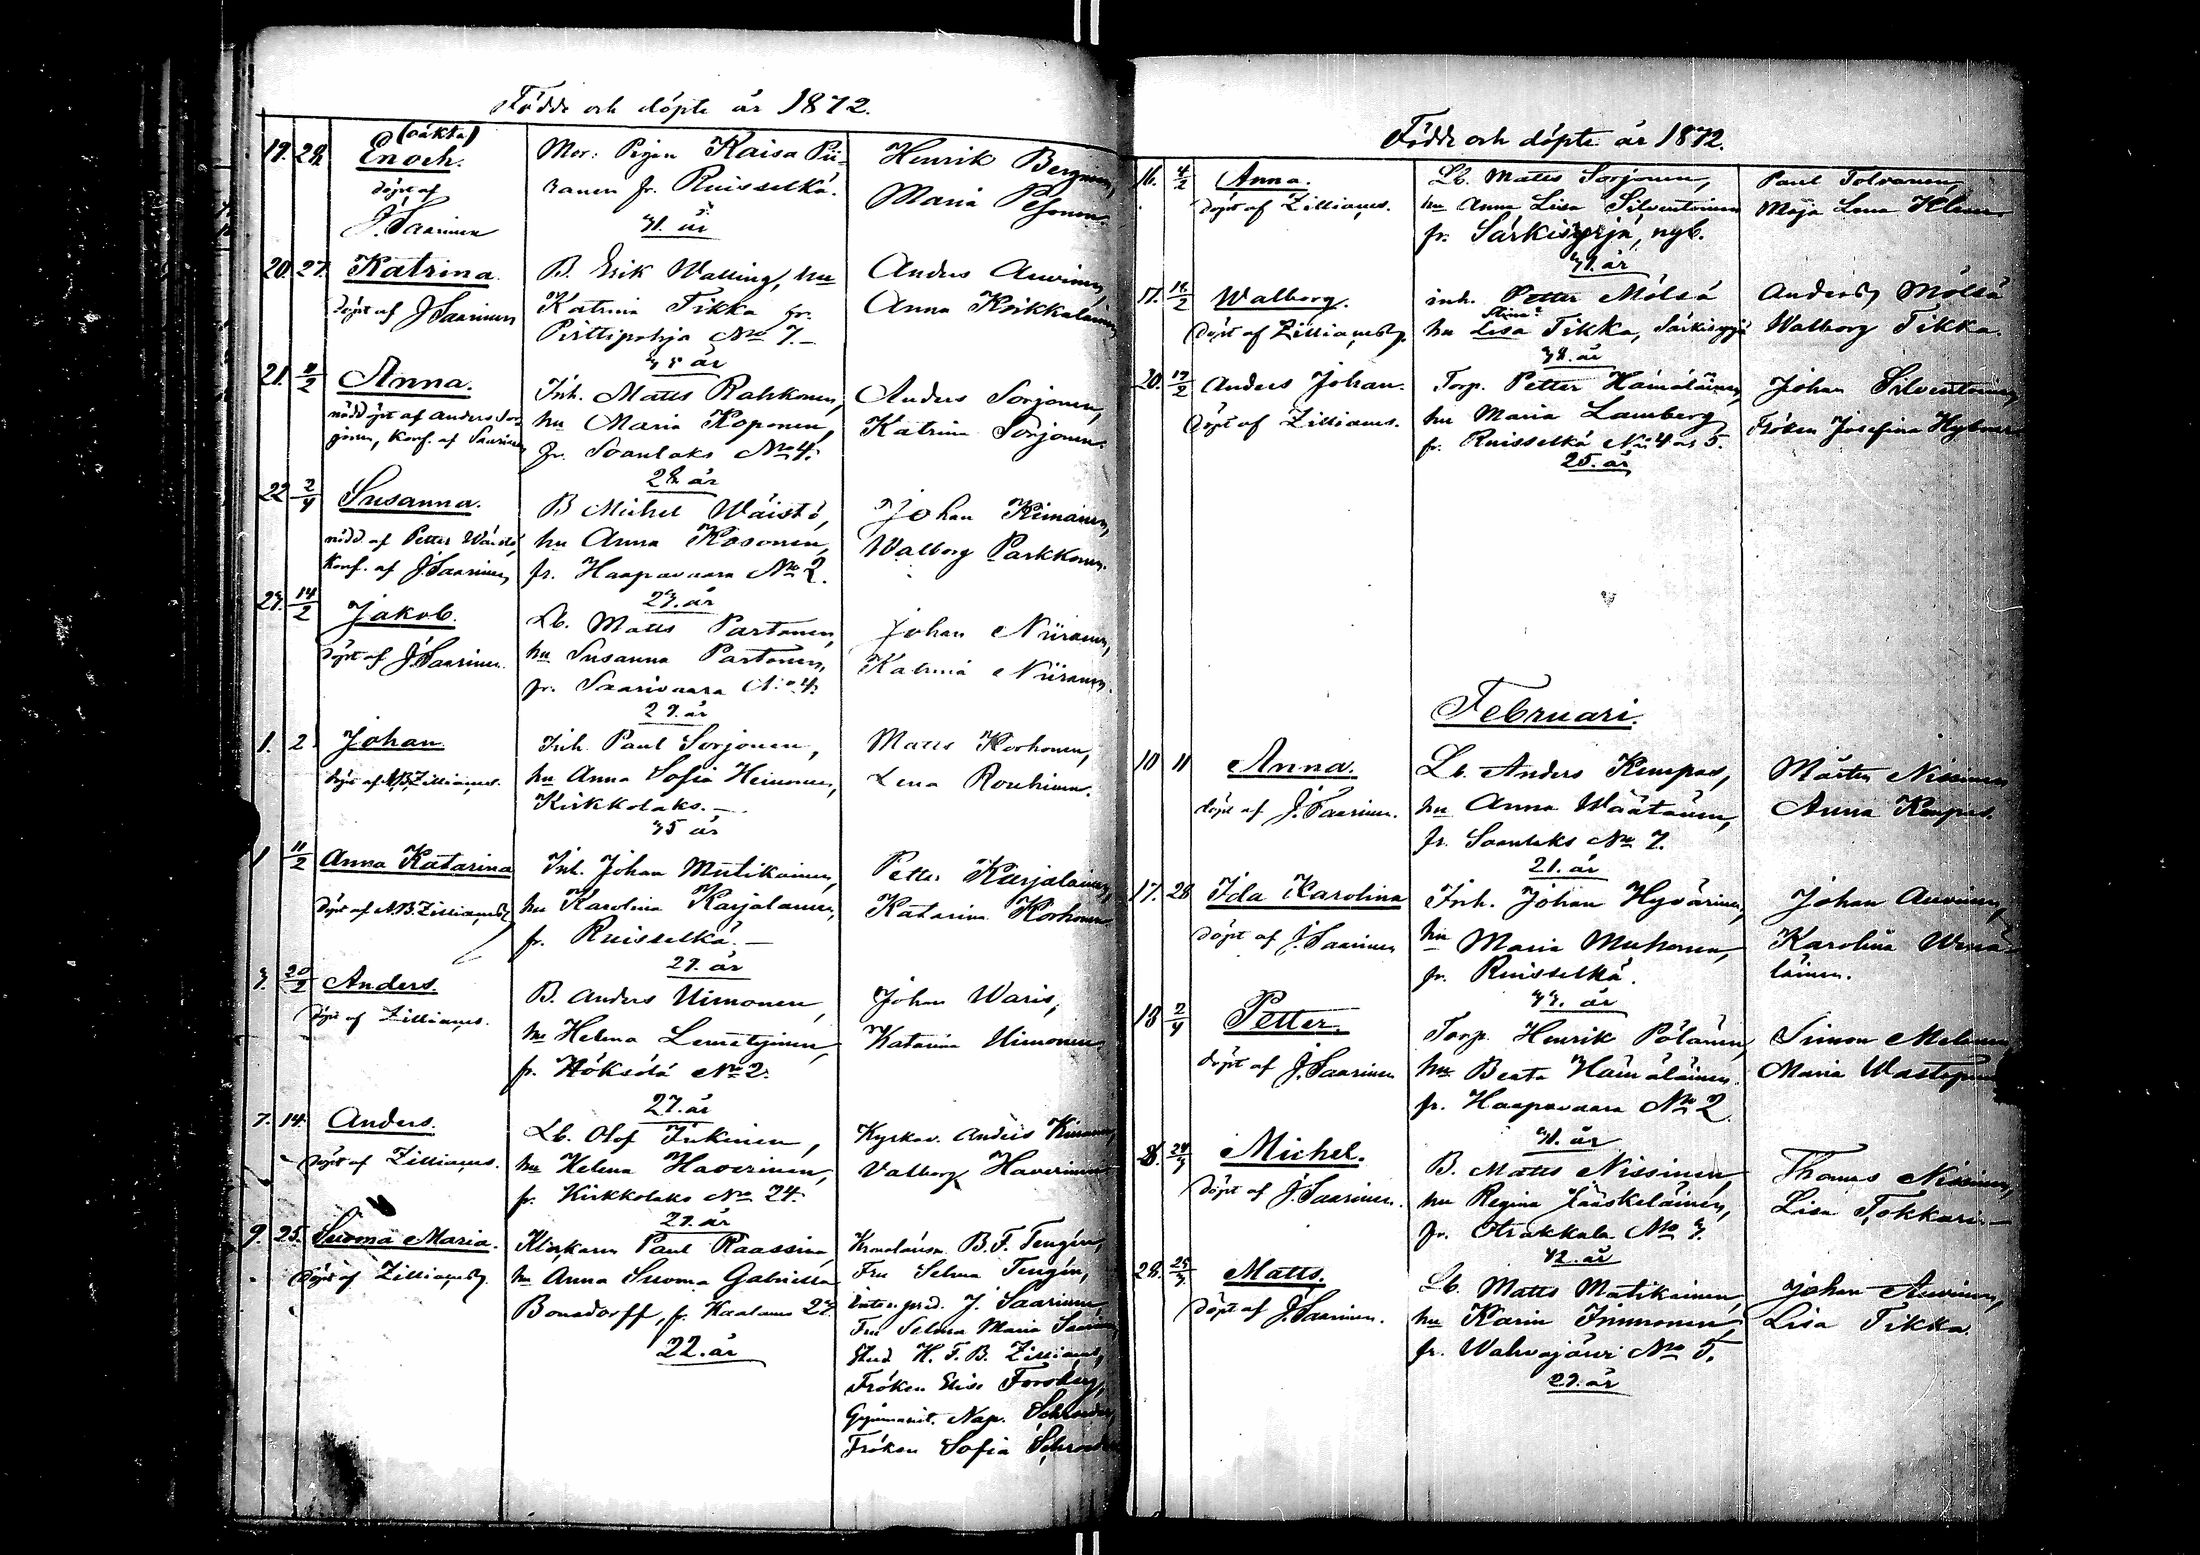 Födde och döpte år 1872.
(oäkta)
19. 28. Enoch. Mor: Pigan Kaisa Pii- Henrik Bergman,
döpt af ranen fr. Ruisselkä. Maria Pesonen.
J. Saarinen 31. år
20. 27. Katrina. B. Erik Walling, hu Anders Auvinen,
döpt af J. Saarinen Katrina Tikka fr. Anna Krikkalainen
Pirttipohja No 7.
35 år
21. 11/2 Anna. Inh. Matts Rahkonen, Anders Sorjonen,
nöddöpt af Anders Sor- hu Maria Koponen, Katrina Sorjonen.
jonen, konf. af Saarinen fr. Soanlaks No 4.
28. år
22 2/4 Susanna. B Michel Wäistö, Johan Kinainen,
nödd af Petter Wäistö, hu Anna Kosonen, Walborg Parkkonen.
konf. af J. Saarinen, fr. Haapavaara No 2.
23. år
23. 14/2 Jakob. Lb. Matts Partanen, Johan Niiranen,
döpt af J. Saarinen. hu Susanna Partanen, Katrina Niiranen.
fr. Saarivaara No 4.
29. år
1. 2 Johan Inh. Paul Sorjonen, Matts Korhonen,
döpt af N.B. Zilliacus. hu Anna Sofia Heinonen, Lena Rouhinen.
Kirkkolaks.
35 år
1 11/2 Anna Katarina Inh. Johan Mutikainen, Petter Karjalainen,
döpt af N.B. Zilliacus hu Karolina Karjalainen, Katarina Korhonen
fr. Ruisselkä.
29. år
3. 20/2 Anders. B. Anders Uimonen, Johan Waris,
döpt af Zilliacus. hu Helena Lemetyinen, Katarina Uimonen
fr. Höksölä No 2.
27. år
7. 14. Anders. Lb. Olof Inkinen, Kyrkov. Anders Kinnunen,
döpt af Zilliacus. hu Helena Haverinen, Valborg Haverinen
fr. Kirkkolaks No 24.
29. år
9. 25. Suoma Maria. Klockaren Paul Raassina, Kronolänsm. B. F. Tengén,
döpt af Zilliacus hu Anna Suoma Gabriella Fru Selma Tengén,
Bonsdorff, fr. Kaalamo 27. J. Saarinen,
22. år Fru Selma Maria Saarinen
Stud H. F. B. Zilliacus,
Fröken Elise Forsberg,
Gymnasist. Nap. Schroeder,
Fröken Sofia Schroeder
Födde och döpte år 1872.
16. 4/2 Anna. Lb. Matts Sorjonen, Paul Tolvanen,
döpt af Zilliacus. hu Anna Lisa Silventoinen Maja Lena
fr. Särkisyrjä, nyb.
39. år
17. 14/2 Walborg. inh. Petter Mölsä Anders Mölsä
Stina?
döpt af Zilliacus. hu Lisa Tikka, Särkisyrjä Walborg Tikka.
38. år
20. 17/2 Anders Johan. Torp. Petter Hämäläinen, Johan Silventoinen,
döpt af Zilliacus. hu Maria Lamberg Fröken Josefina
fr. Ruisselkä No 4 os 5.
25. år
Februari.
10 11 Anna. Lb. Anders Kempas, Mårten Nissinen
döpt af J. Saarinen. hu Anna Wäätänen, Anna Kempas.
fr. Soanlaks No 7.
21. år
17. 28 Ida Karolina Inh. Johan Hyvärinen, Johan Auvinen,
döpt af J. Saarinen hu Maria Muhonen, Karolina Wena-
fr. Ruisselkä. läinen.
33. år
18 2/4 Petter. Torp. Henrik Pölänen, Simon
döpt af J. Saarinen hu Beata Hämäläinen. Maria
fr. Haapavaara No 2
31. år
28. 24/3 Michel. B. Matts Nissinen, Thomas Nissinen,
döpt af J. Saarinen. hu Regina Jääskeläinen, Lisa Tokkari
fr. Otrakkala No 3.
42. år
28. 25/3 Matts. Lb. Matts Matikainen, Johan Auvinen,
döpt af J. Saarinen. hu Karin Immonen Lisa Tikka.
fr. Wahvajärvi No 5.
29. år